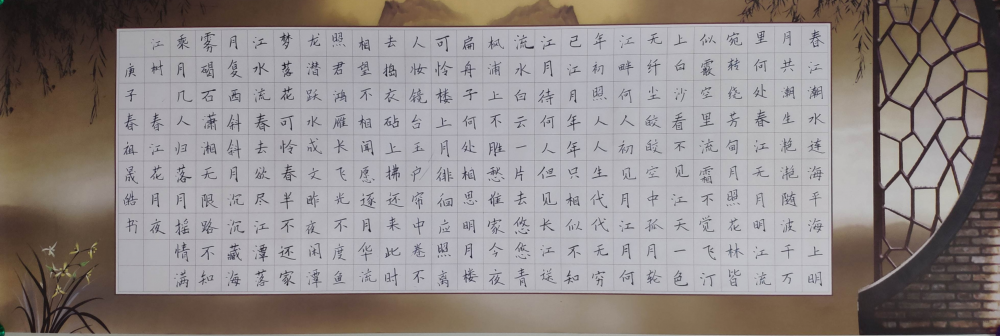 春江潮水连海平海上明
月共潮生滟滟随波千万
里何处春江无月明江流
宛转绕芳甸月照花林皆
似霰空里流霜不觉飞汀
上白沙看不见江天一色
无纤尘皎皎空中孤月轮
江畔何人初见月江月何
年初照人人生代代无穷
已江月年年只相似不知
江月待何人但见长江送
流水白云一片去悠悠青
枫浦上不胜愁谁家今夜
扁舟子何处相思明月楼
可怜楼上月徘徊应照离
人妆镜台玉户帘中卷不
去捣衣砧上拂还来此时
相望不相闻愿逐月华流
照君鸿雁长飞光不度鱼
龙潜跃水成文昨夜闲潭
梦落花可怜春半不还家
江水流春去欲尽江潭落
月复西斜斜月沉沉藏海
雾碣石潇湘无限路不知
乘月几人归落月摇情满
江树 春江花月夜
庚子春祖晟皓书